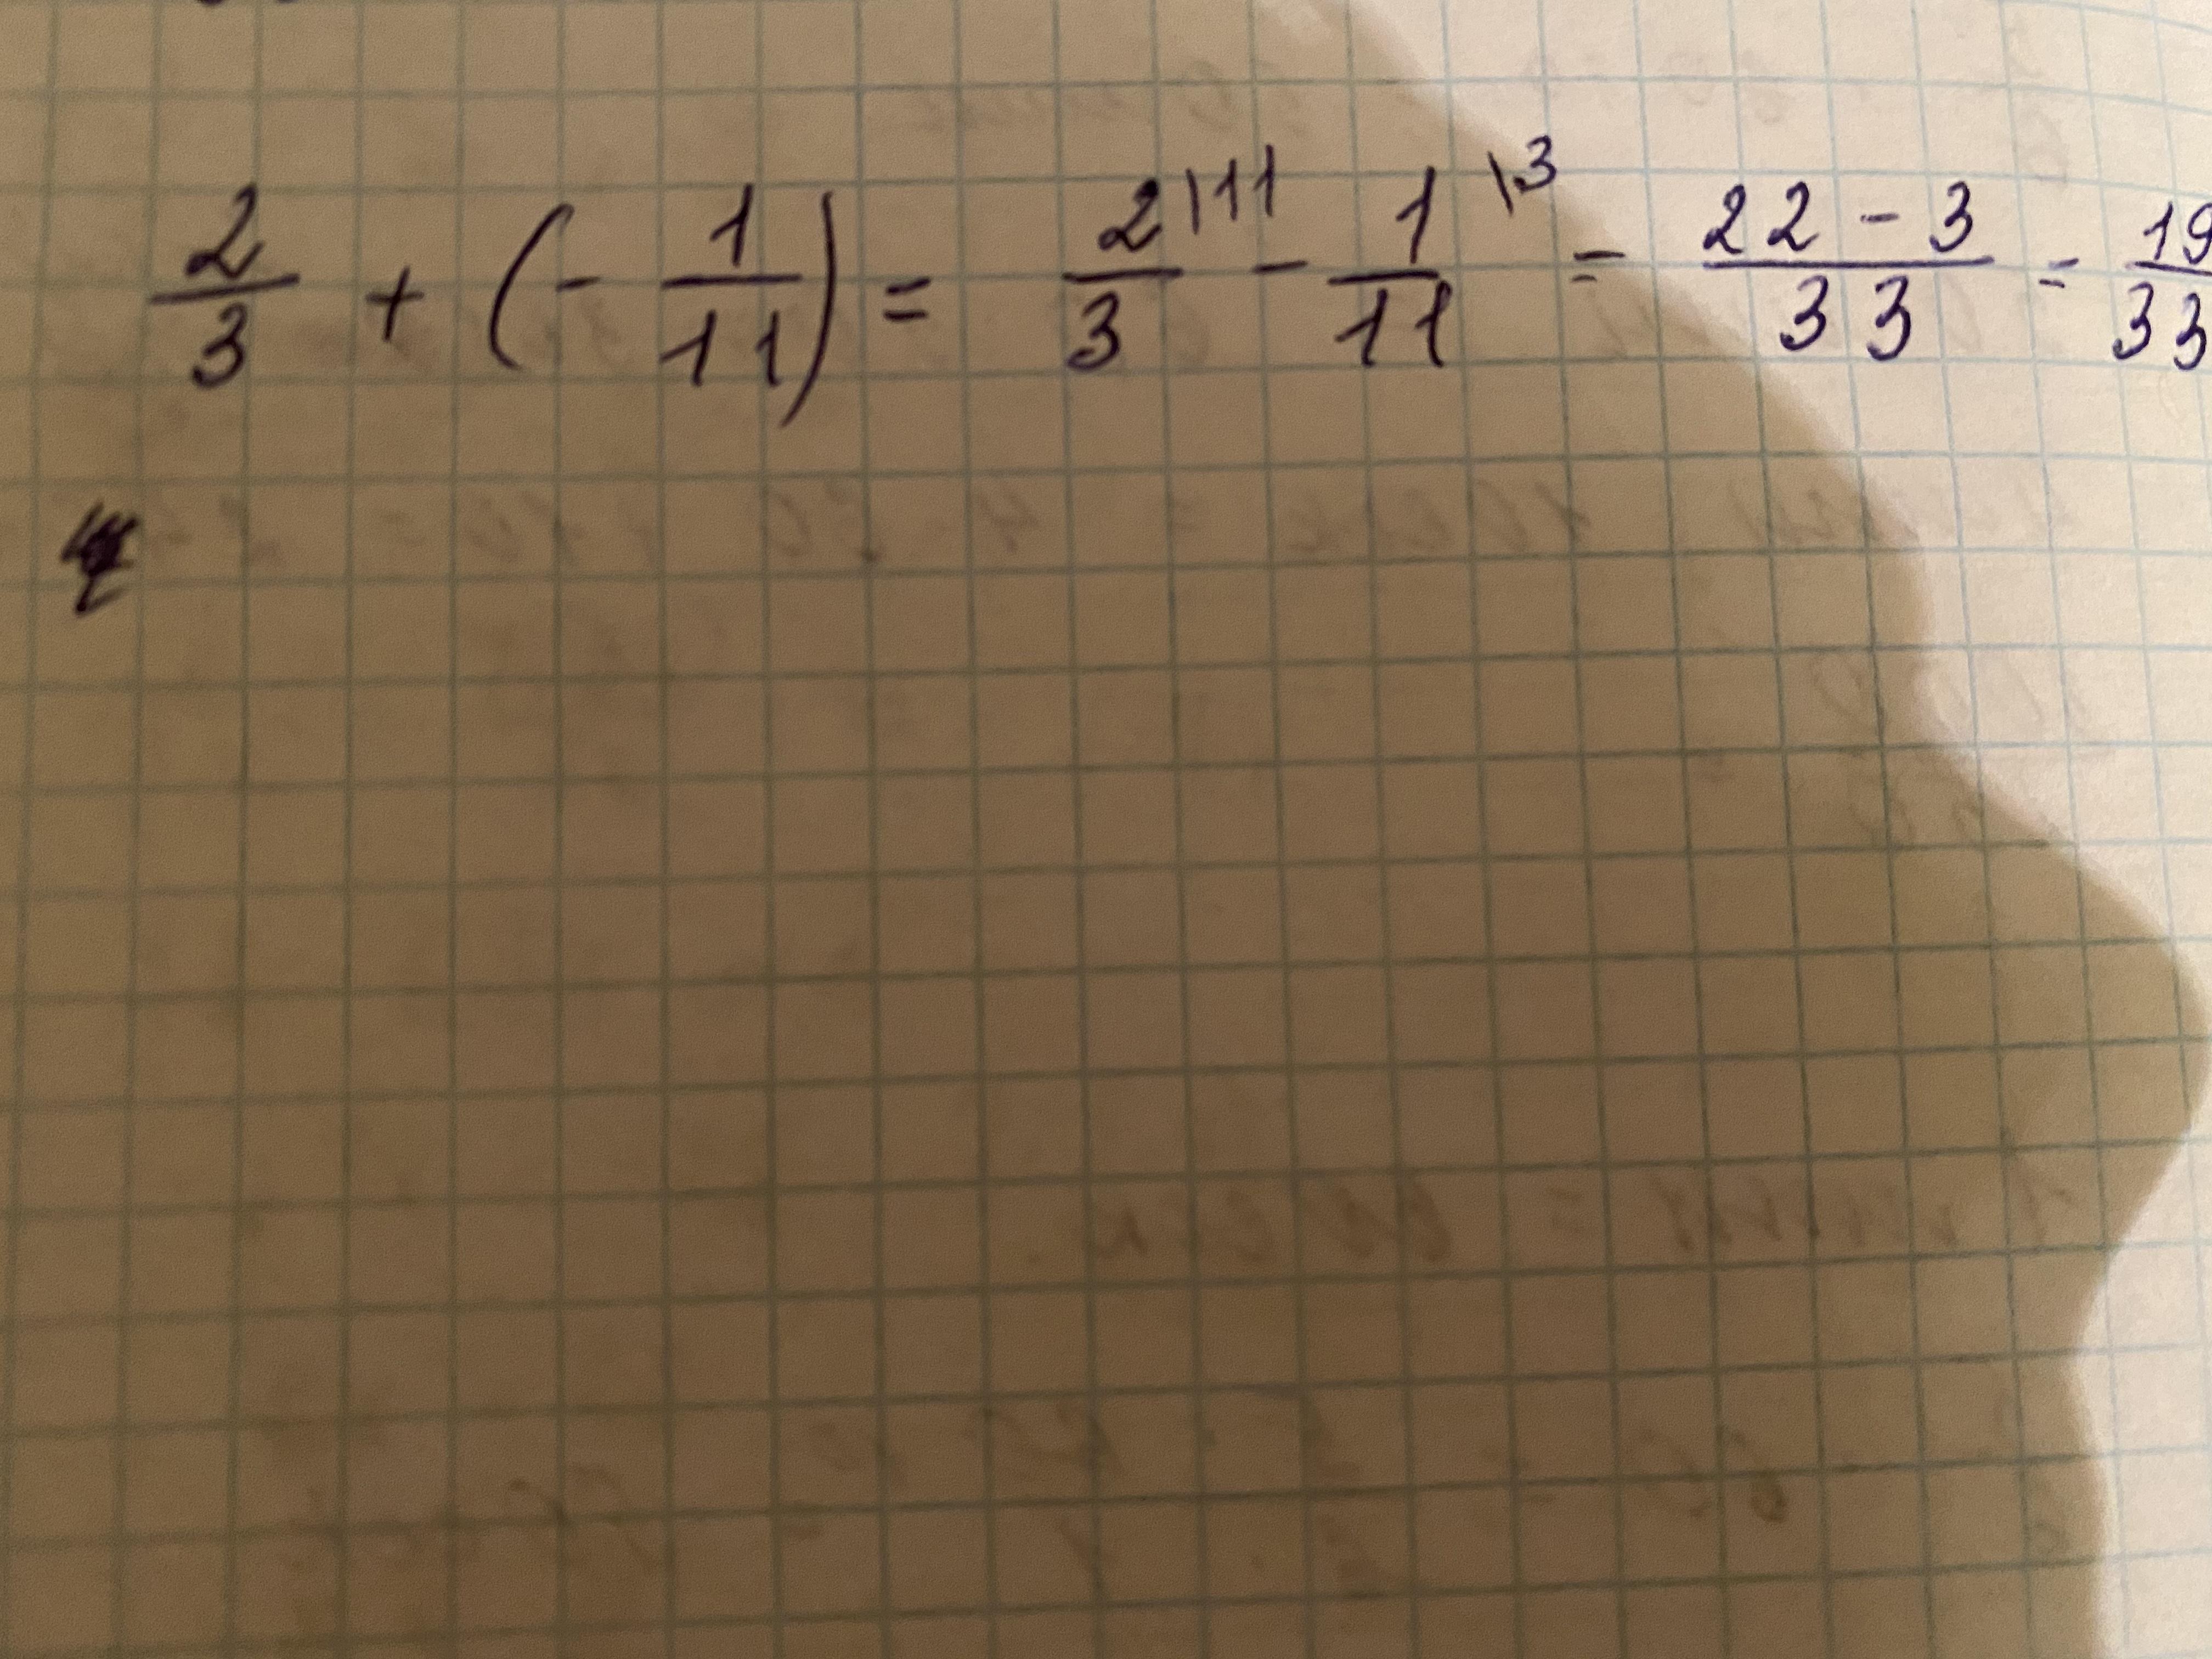 2/3 + (- 1/11) = 2\11/3 - 1\3/11 = 22 - 3/33 = 19/33